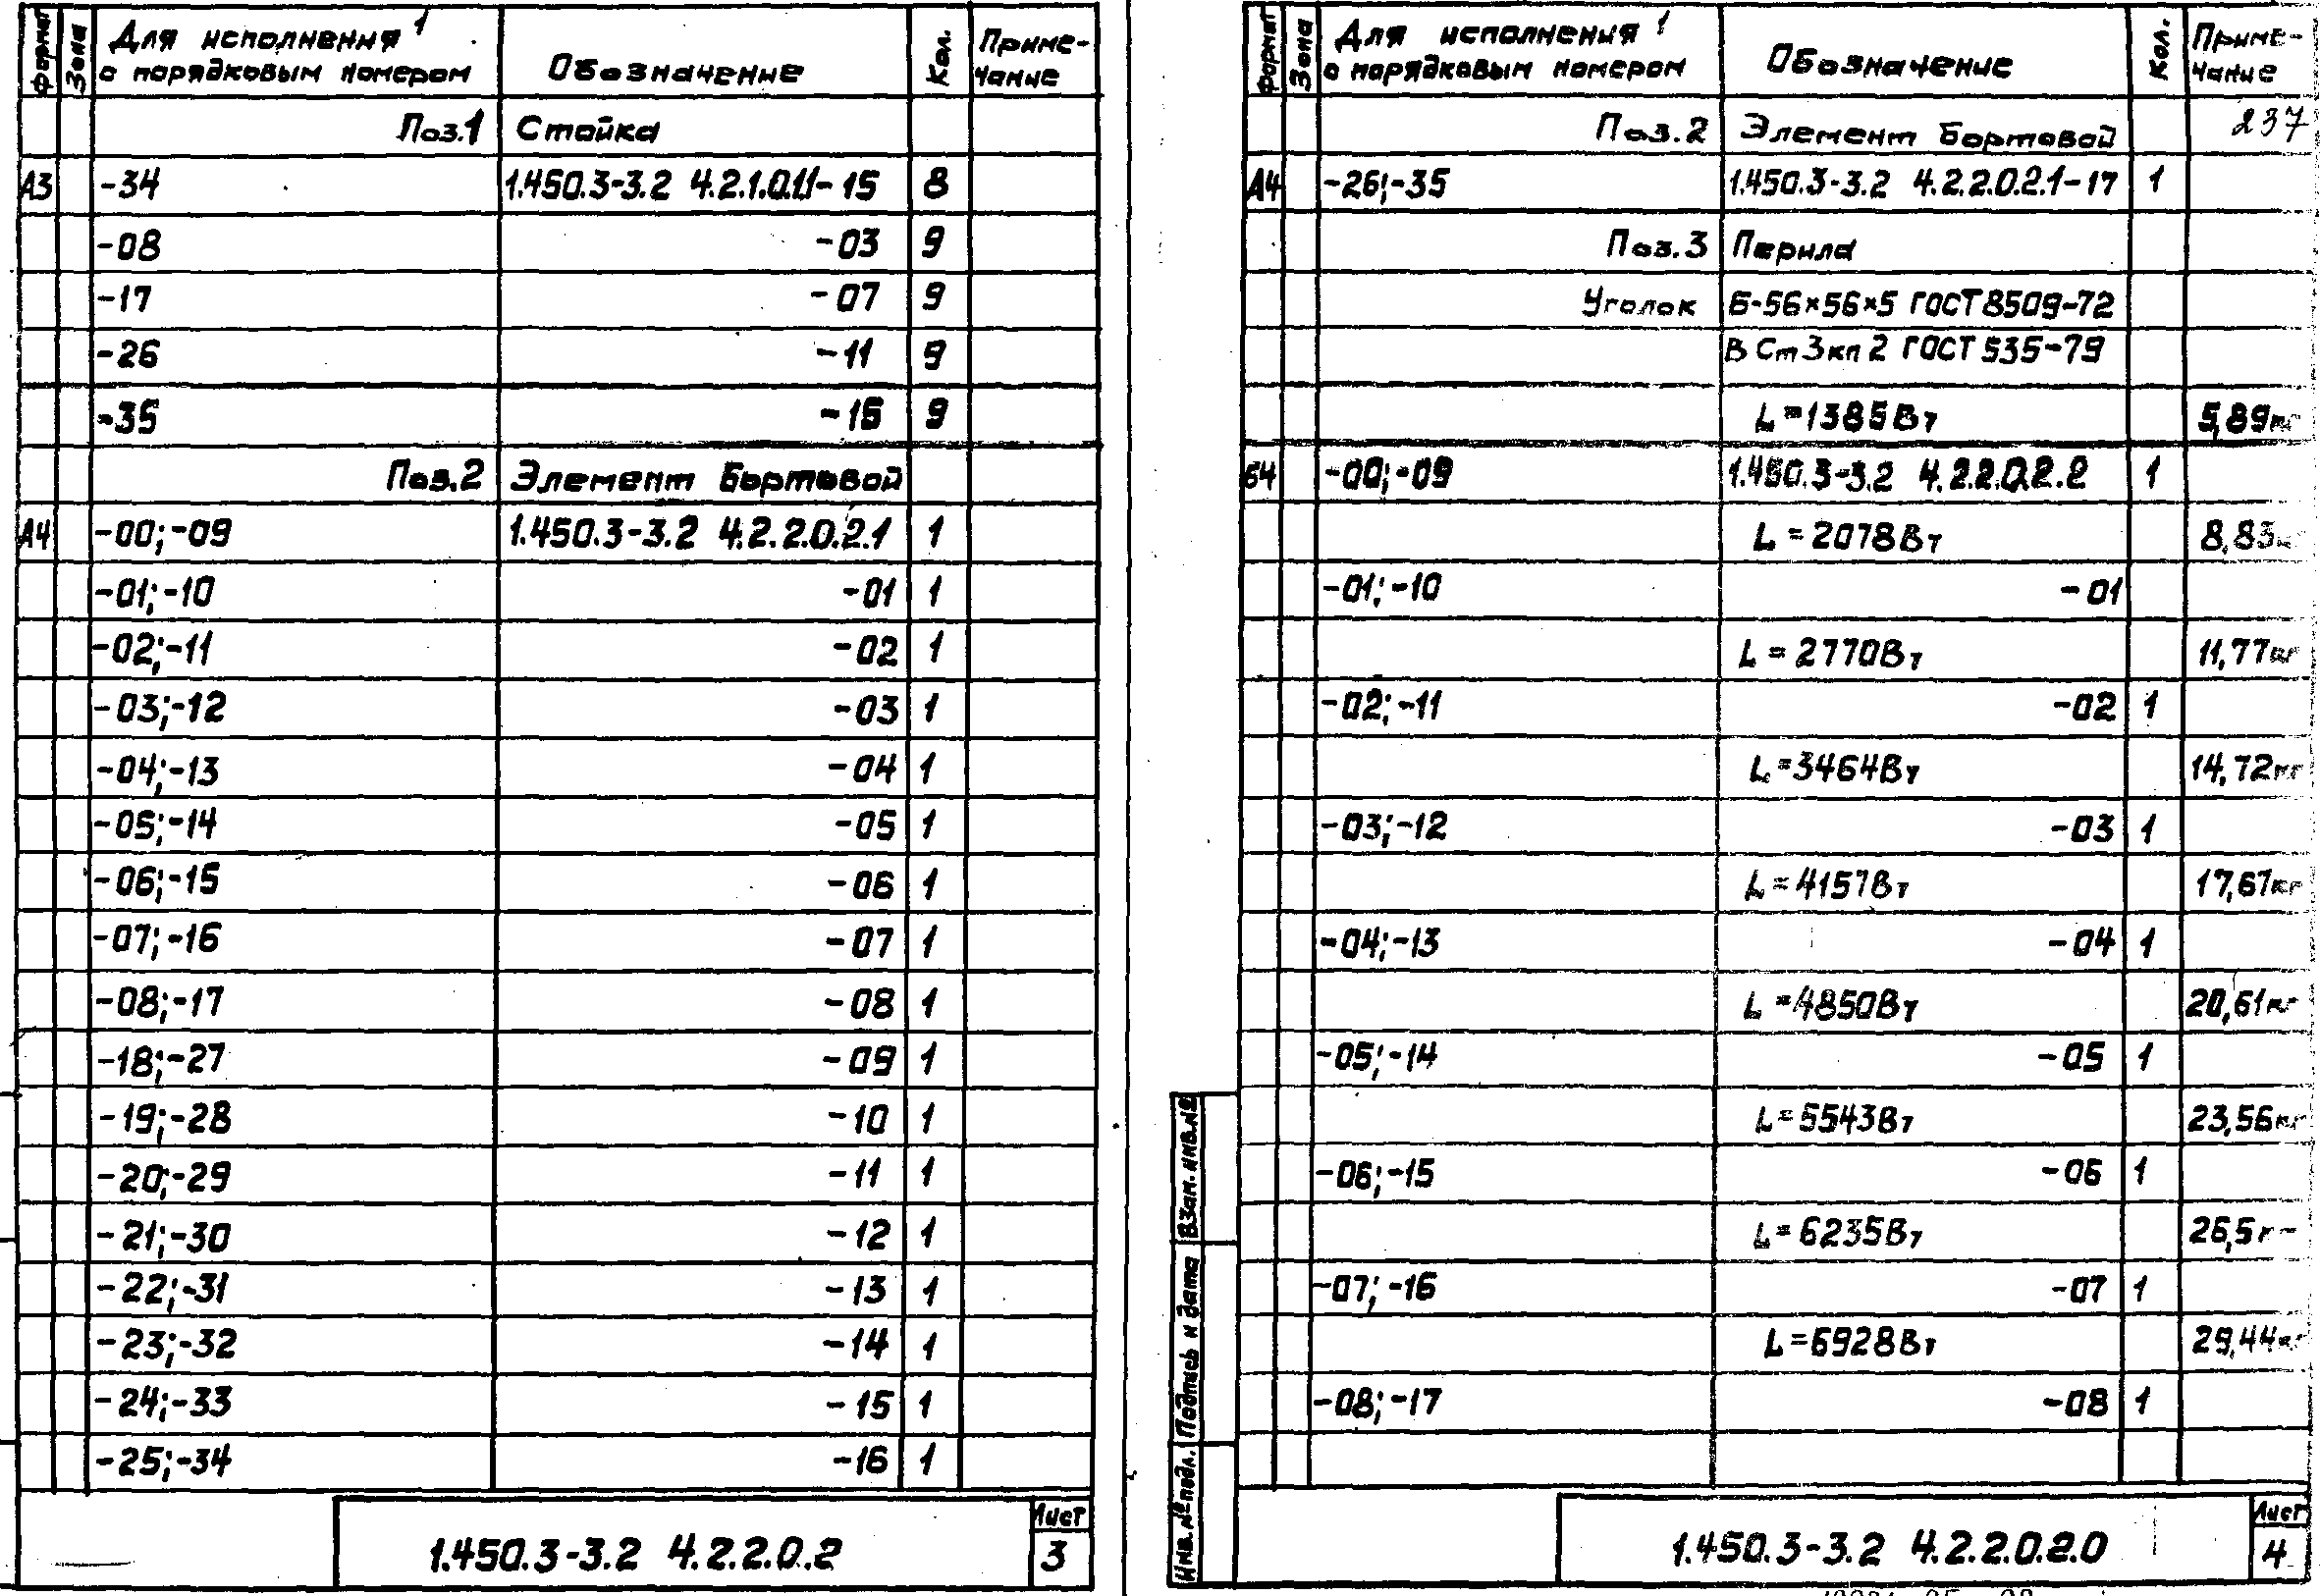 Формат Зона Для исполнения 1 с порядковым номером Обозначение Кол. Приме-чание
Поз.1 Стойка
А3 -34 1.450.3-3.2 4.2.1.0.1.1-15 8
-08 -03 9
-17 -07 9
-26 -11 9
-35 -15 9
Поз.2 Элемент бортовой
А4 -00;-09 1.450.3-3.2 4.2.2.0.2.1 1
-01;-10 -01 1
-02;-11 -02 1
-03;-12 -03 1
-04;-13 -04 1
-05;-14 -05 1
-06;-15 -06 1
-07;-16 -07 1
-08;-17 -08 1
-18;-27 -09 1
-19;-28 -10 1
-20;-29 -11 1
-21;-30 -12 1
-22;-31 -13 1
-23;-32 -14 1
-24;-33 -15 1
-25;-34 -16 1
1.450.3-3.2 4.2.2.0.2
Лист
3
Формат Зона Для исполнения 1 с порядковым номером Обозначение Кол. Приме-чание
Поз.2 Элемент бортовой 237
А4 -26;-35 1.450.3-3.2 4.2.2.0.2.1-17 1
Поз.3 Перила
Уголок Б-56×56×5 ГОСТ 8509-72
ВСт3кп2 ГОСТ 535-79
L=1385Вт 5,89кг
Б4 -00;-09 1.450.3-3.2 4.2.2.0.2.2 1
L=2078Вт 8,83кг
-01;-10 -01
L=2770Вт 11,77кг
-02;-11 -02 1
L=3464Вт 14,72кг
-03;-12 -03 1
L=4157Вт 17,67кг
-04;-13 -04 1
L=4850Вт 20,61кг
-05;-14 -05 1
L=5543Вт 23,56кг
-06;-15 -06 1
L=6235Вт 26,5
-07;-16 -07 1
L=6928Вт 29,44кг
-08;-17 -08 1
Инв.№ подл. Подпись и дата Взам.инв.№
1.450.3-3.2 4.2.2.0.2.0
Лист
4